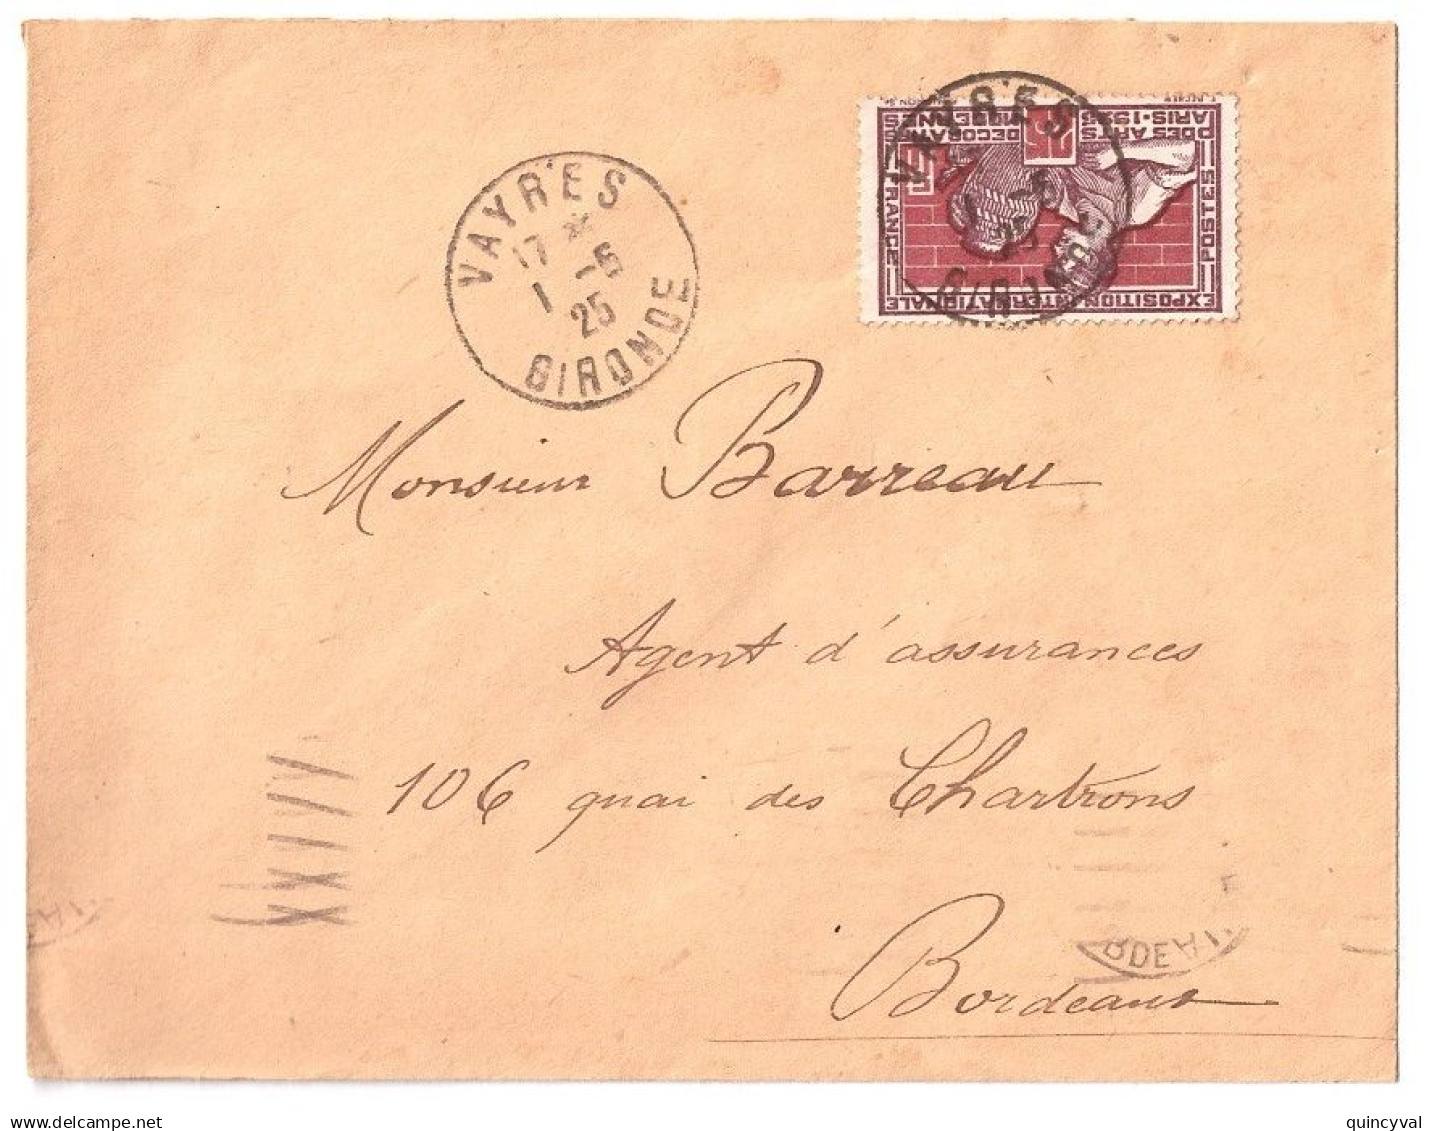 VAYRES
17 *
1 -6
25
GIRONDE
EXPOSITION INTERNATIONALE
DES ARTS
DECORA
PARIS·1925
FRANCE
POSTES
25
VAYRES
1 -6
25
GIRONDE
Monsieur Barreau
Agent d'assurances
106 quai des Chartrons
Bordeaux
RDEA
quincyval